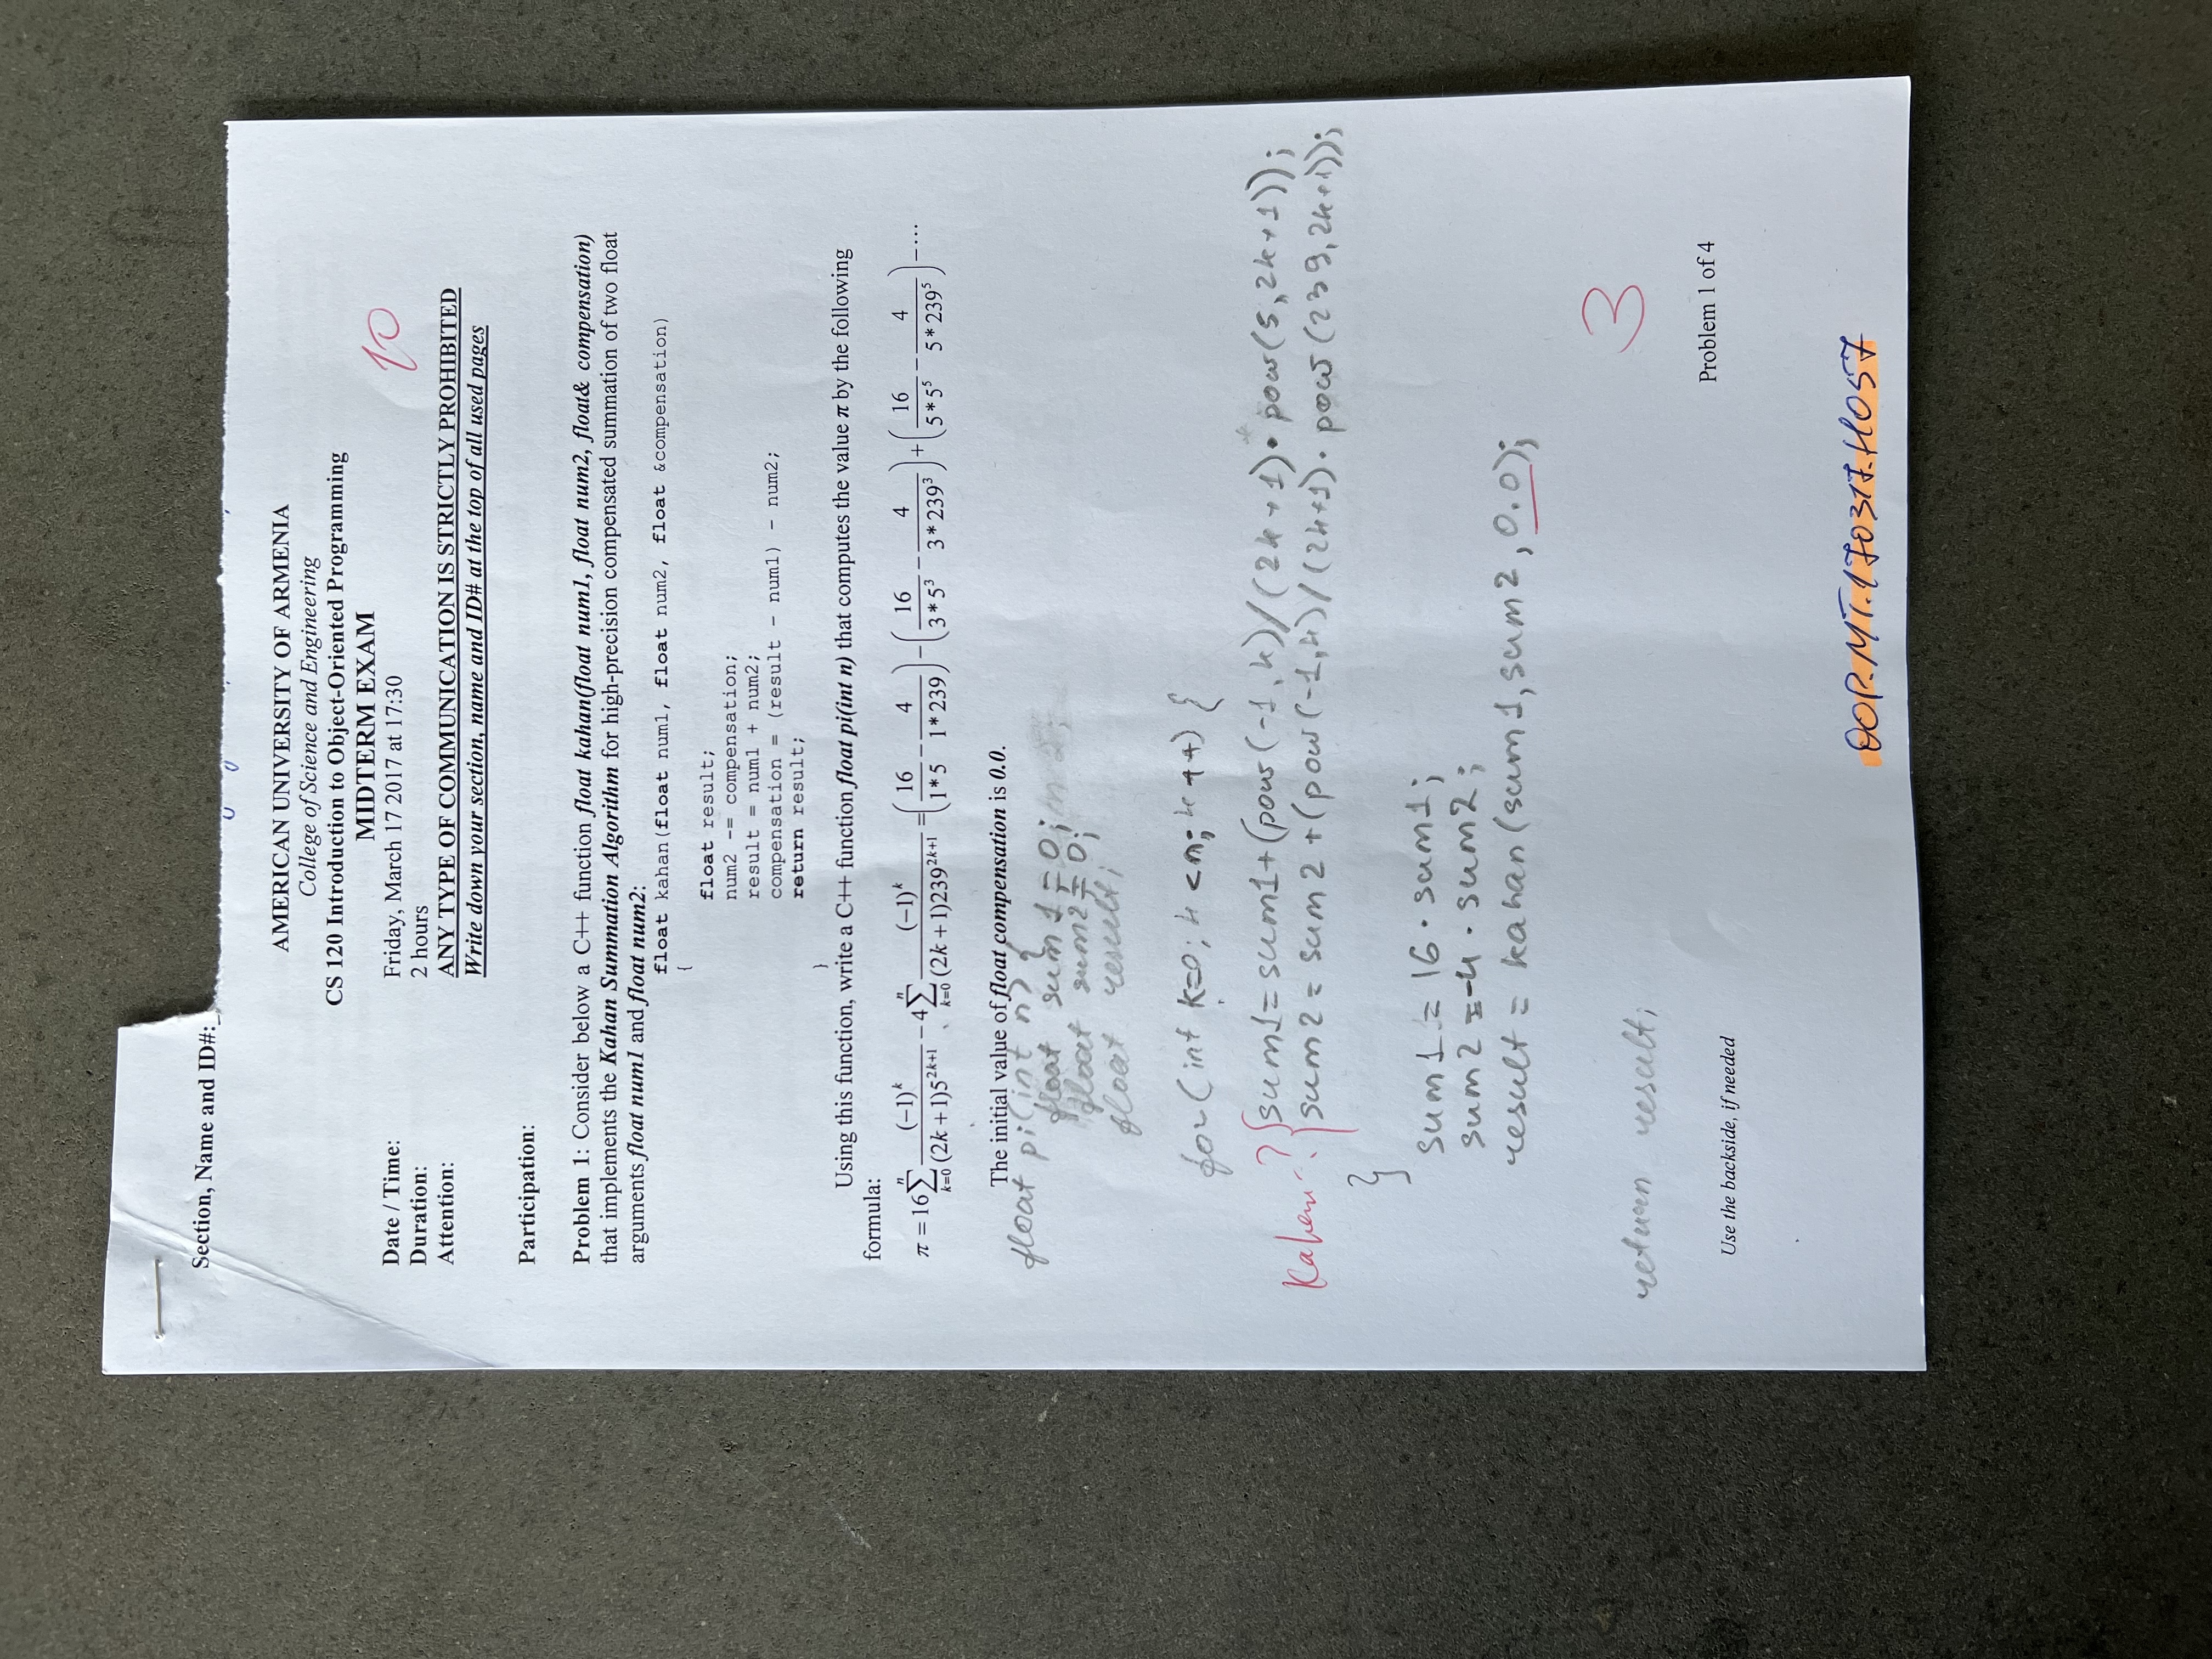 Section, Name and ID#:
AMERICAN UNIVERSITY OF ARMENIA
College of Science and Engineering
CS 120 Introduction to Object-Oriented Programming
MIDTERM EXAM
10
Date / Time: Friday, March 17 2017 at 17:30
Duration: 2 hours
Attention: ANY TYPE OF COMMUNICATION IS STRICTLY PROHIBITED
Write down your section, name and ID# at the top of all used pages
Participation:
Problem 1: Consider below a C++ function float kahan(float num1, float num2, float& compensation)
that implements the Kahan Summation Algorithm for high-precision compensated summation of two float
arguments float num1 and float num2:
float kahan(float num1, float num2, float &compensation)
{
float result;
num2 -= compensation;
result = num1 + num2;
compensation = (result - num1) - num2;
return result;
}
Using this function, write a C++ function float pi(int n) that computes the value π by the following
formula:
π = 16 ∑_{k=0}^{n} (-1)^k / ((2k+1)5^{2k+1}) - 4 ∑_{k=0}^{n} (-1)^k / ((2k+1)239^{2k+1}) = (16/(1*5) - 4/(1*239)) - (16/(3*5^3) - 4/(3*239^3)) + (16/(5*5^5) - 4/(5*239^5)) - ⋯
The initial value of float compensation is 0.0.
float pi(int n) {
float sum1 = 0;
float sum2 = 0;
float result;
for (int k=0; k <n; k++) {
? { sum1 = sum1 + (pow(-1, k) / (2k+1) • pow(5, 2k+1));
Kahan - ? sum2 = sum2 + (pow(-1, k) / (2k+1) • pow(239, 2k+1));
}
sum1 = 16 · sum1;
sum2 = -4 · sum2;
result = kahan(sum1, sum2, 0.0);
3
return result;
Problem 1 of 4
Use the backside, if needed
OOP.MT.170317.H057